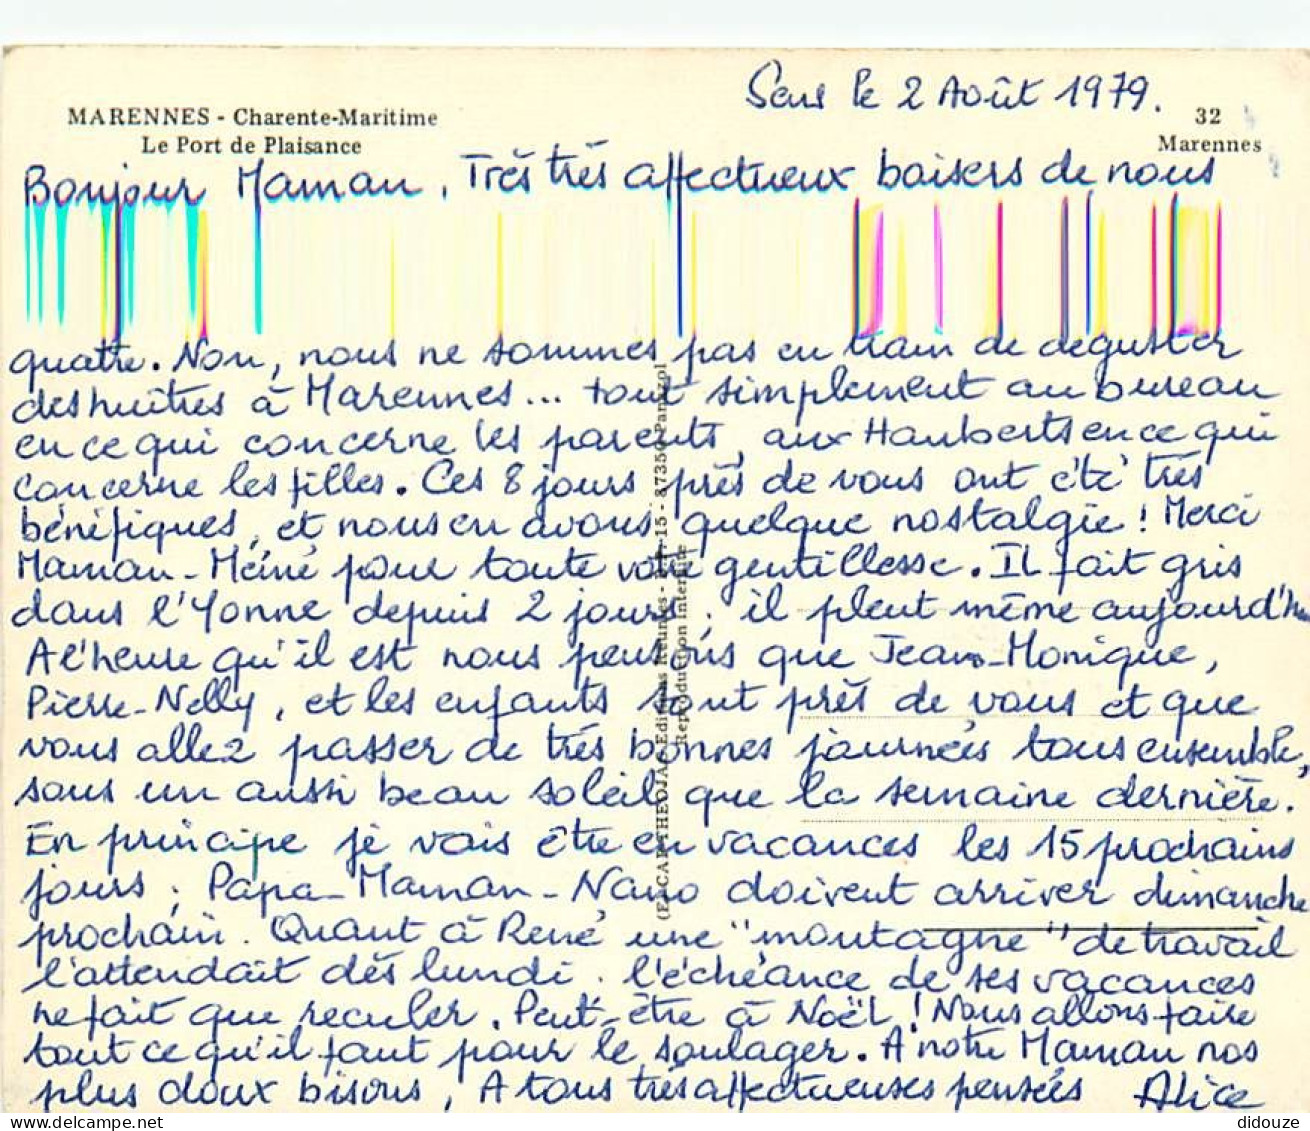 Sens le 2 Août 1979.
MARENNES - Charente-Maritime
Le Port de Plaisance
32
Marennes
Bonjour Maman. Très très affectueux baisers de nous
quatre. Non, nous ne sommes pas en train de deguster
des huîtres à Marennes... tout simplement au bureau
en ce qui concerne les parents, aux Hauberts en ce qui
concerne les filles. Ces 8 jours près de vous ont été très
bénéfiques, et nous en avons quelque nostalgie ! Merci
Maman-Mémé pour toute votre gentillesse. Il fait gris
dans l'Yonne depuis 2 jours ; il pleut même aujourd'hu
A l'heure qu'il est nous pensons que Jean-Monique,
Pierre-Nelly, et les enfants sont près de vous et que
vous allez passer de très bonnes journées tous ensemble,
sous un aussi beau soleil que la semaine dernière.
En principe je vais être en vacances les 15 prochains
jours ; Papa-Maman-Nano doivent arriver dimanche
prochain. Quant à René une "montagne" de travail
l'attendait dès lundi. l'échéance de ses vacances
ne fait que reculer. Peut-être à Noël ! Nous allons faire
tout ce qu'il faut pour le soulager. A notre Maman nos
plus doux bisous, A tous très affectueuses pensées Alice
Editions Réunies
Reproduction interdite
delcampe.net
didouze